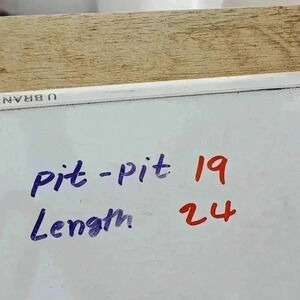 U BRAN
pit-pit 19
Length 24